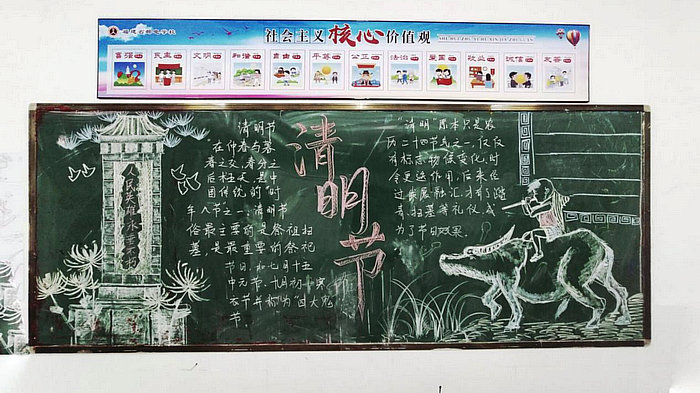 福建省邮电学校
社会主义核心价值观
SHE HUI ZHU YI HE XIN JIA ZHI GUAN
富强 民主 文明 和谐 自由 平等 公正 法治 爱国 敬业 诚信 友善
人民英雄永垂不朽
清明节
清明节
在仲春与暮
春之交,春分之
后 是中
国传统的时
年八节之一,清明节
俗最主要的是祭祖扫
墓,是最重要的祭祀
节日,和七月十五
中元节,十月初一寒
衣节并称为四大鬼
节。
"清明"原本只是农
历二十四节气之一,仅仅
有标志物候变化、时
令更迭作用,后来经
过发展融汇,才有了踏
青、扫墓等礼仪,成
为了节日